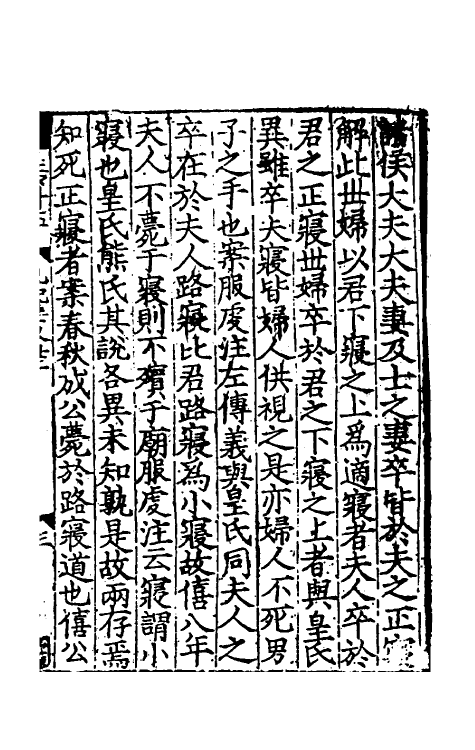 諸侯大夫大夫妻及士之妻卒皆於夫之正寢
解此世婦以君下寢之上爲適寢者夫人卒於
君之正寢世婦卒於君之下寢之上者與皇氏
異雖卒夫寢皆婦人供視之是亦婦人不死男
子之手也案服虔注左傳義與皇氏同夫人之
卒在於夫人路寢比君路寢爲小寢故僖八年
夫人不薨于寢則不殯于廟服虔注云寢謂小
寢也皇氏熊氏其說各異未知孰是故兩存焉
知死正寢者案春秋成公薨於路寢道也僖公